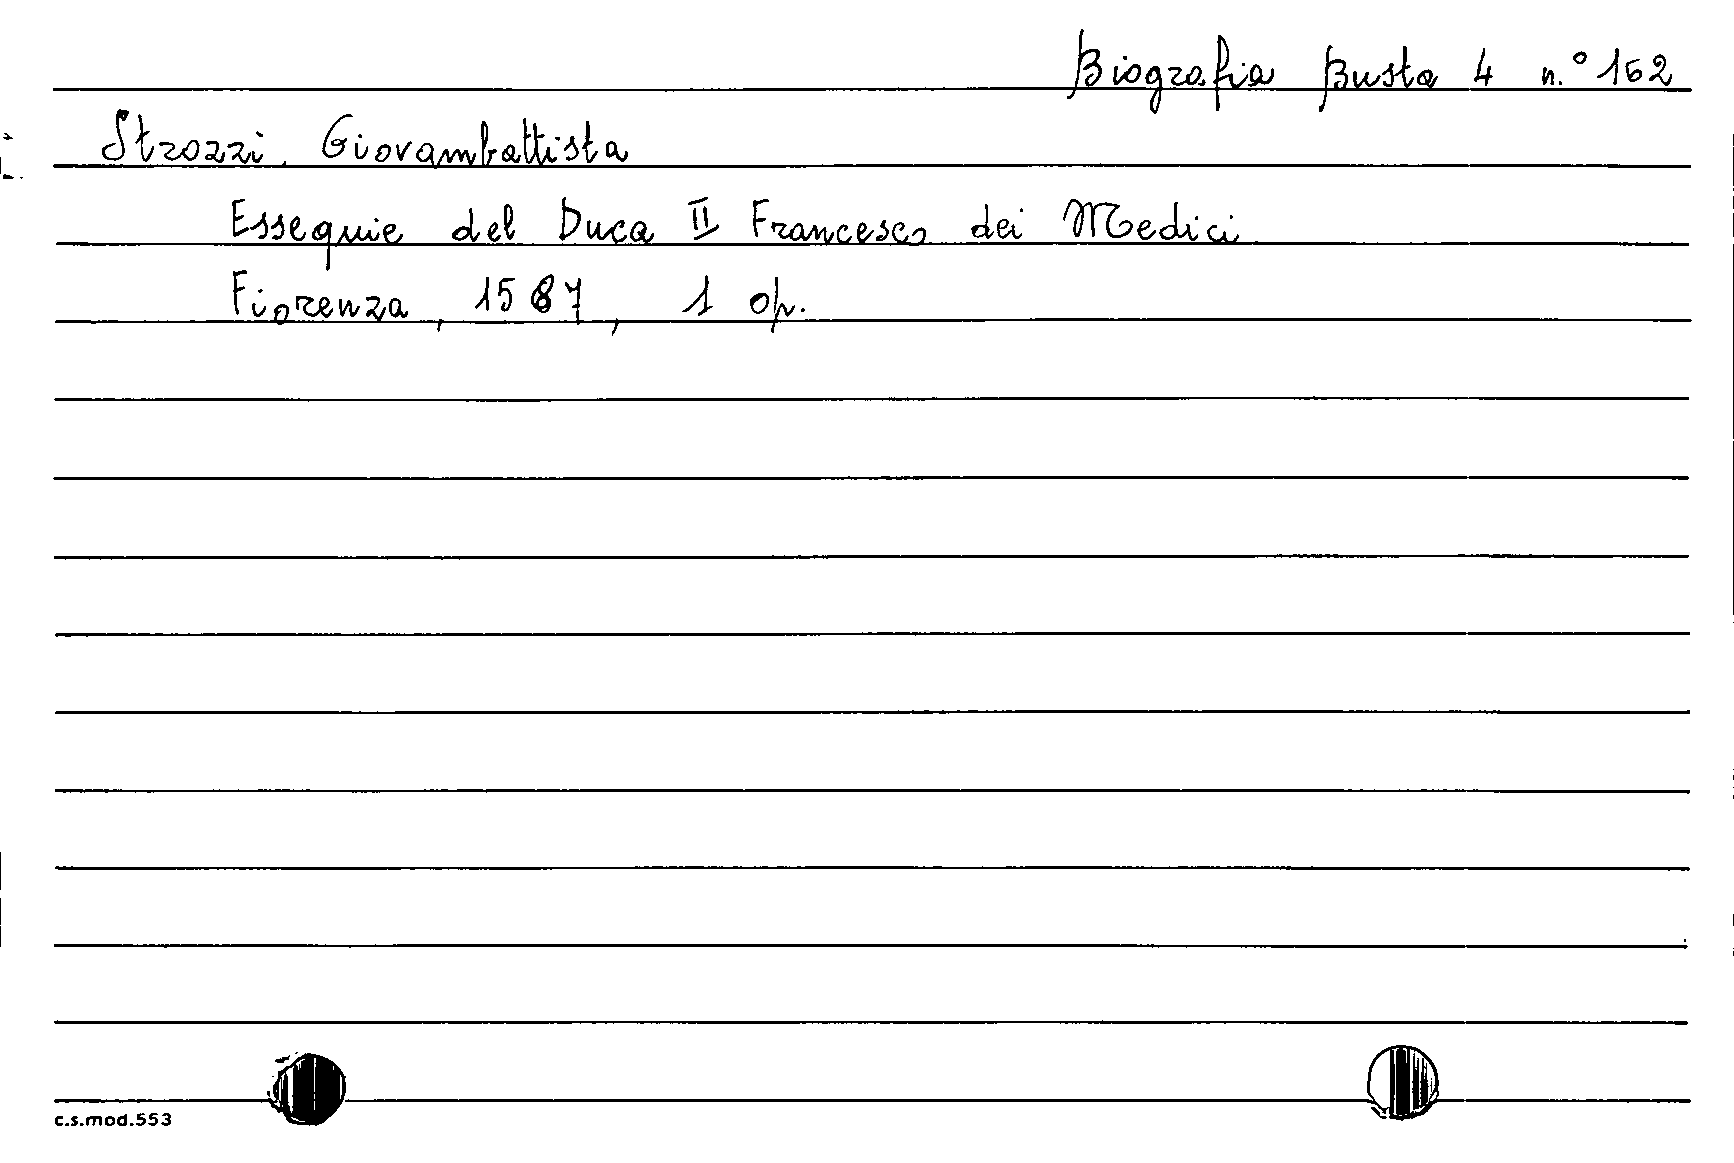 Biografia Busta 4 n.° 162
Strozzi, Giovambattista
Essequie del Duca II Francesco dei Medici
Fiorenza, 1587, 1 op.
c.s.mod.553